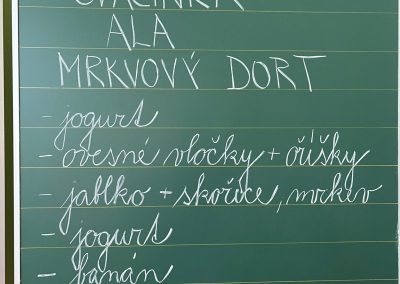 SVAČINKA
ALA
MRKVOVÝ DORT
- jogurt
- ovesné vločky + oříšky
- jablko + skořice, mrkev
- jogurt
- banán